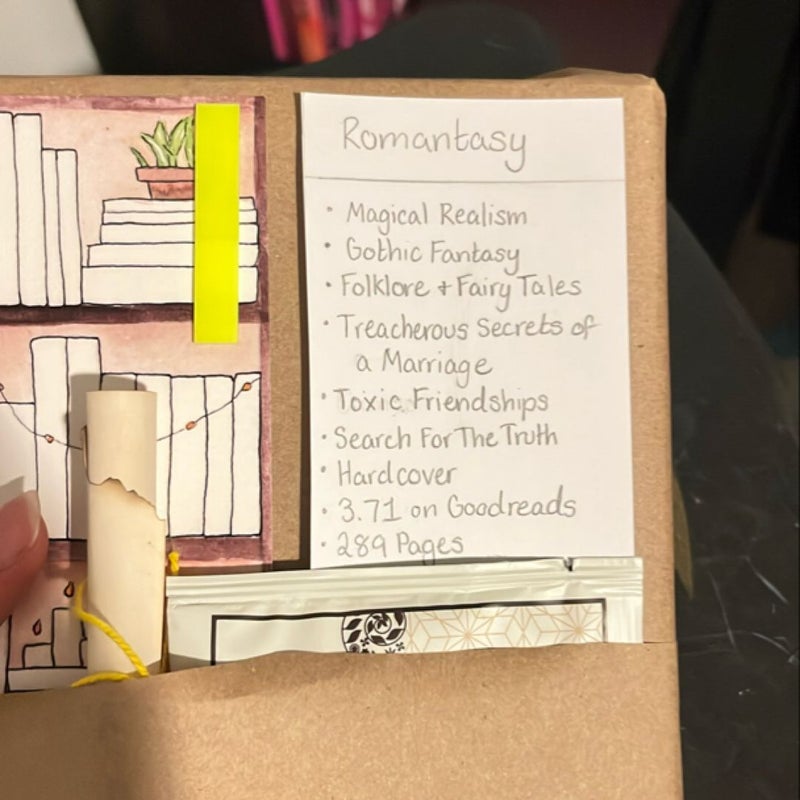 Romantasy
• Magical Realism
• Gothic Fantasy
• Folklore + Fairy Tales
• Treacherous Secrets of
a Marriage
• Toxic Friendships
• Search For The Truth
• Hardcover
• 3.71 on Goodreads
• 289 Pages